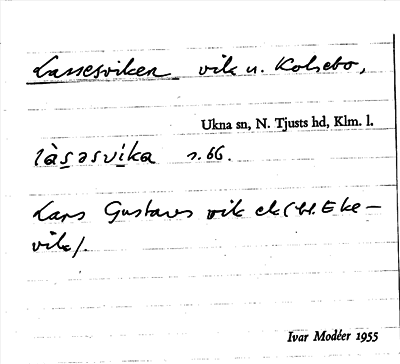 Lassesviken vik u. Kolsebo,
Ukna sn, N. Tjusts hd, Klm. l.
làsəsvika s. 66.
Lars Gustavs vik el (bl. Eke–
vik).
Ivar Modéer 1955